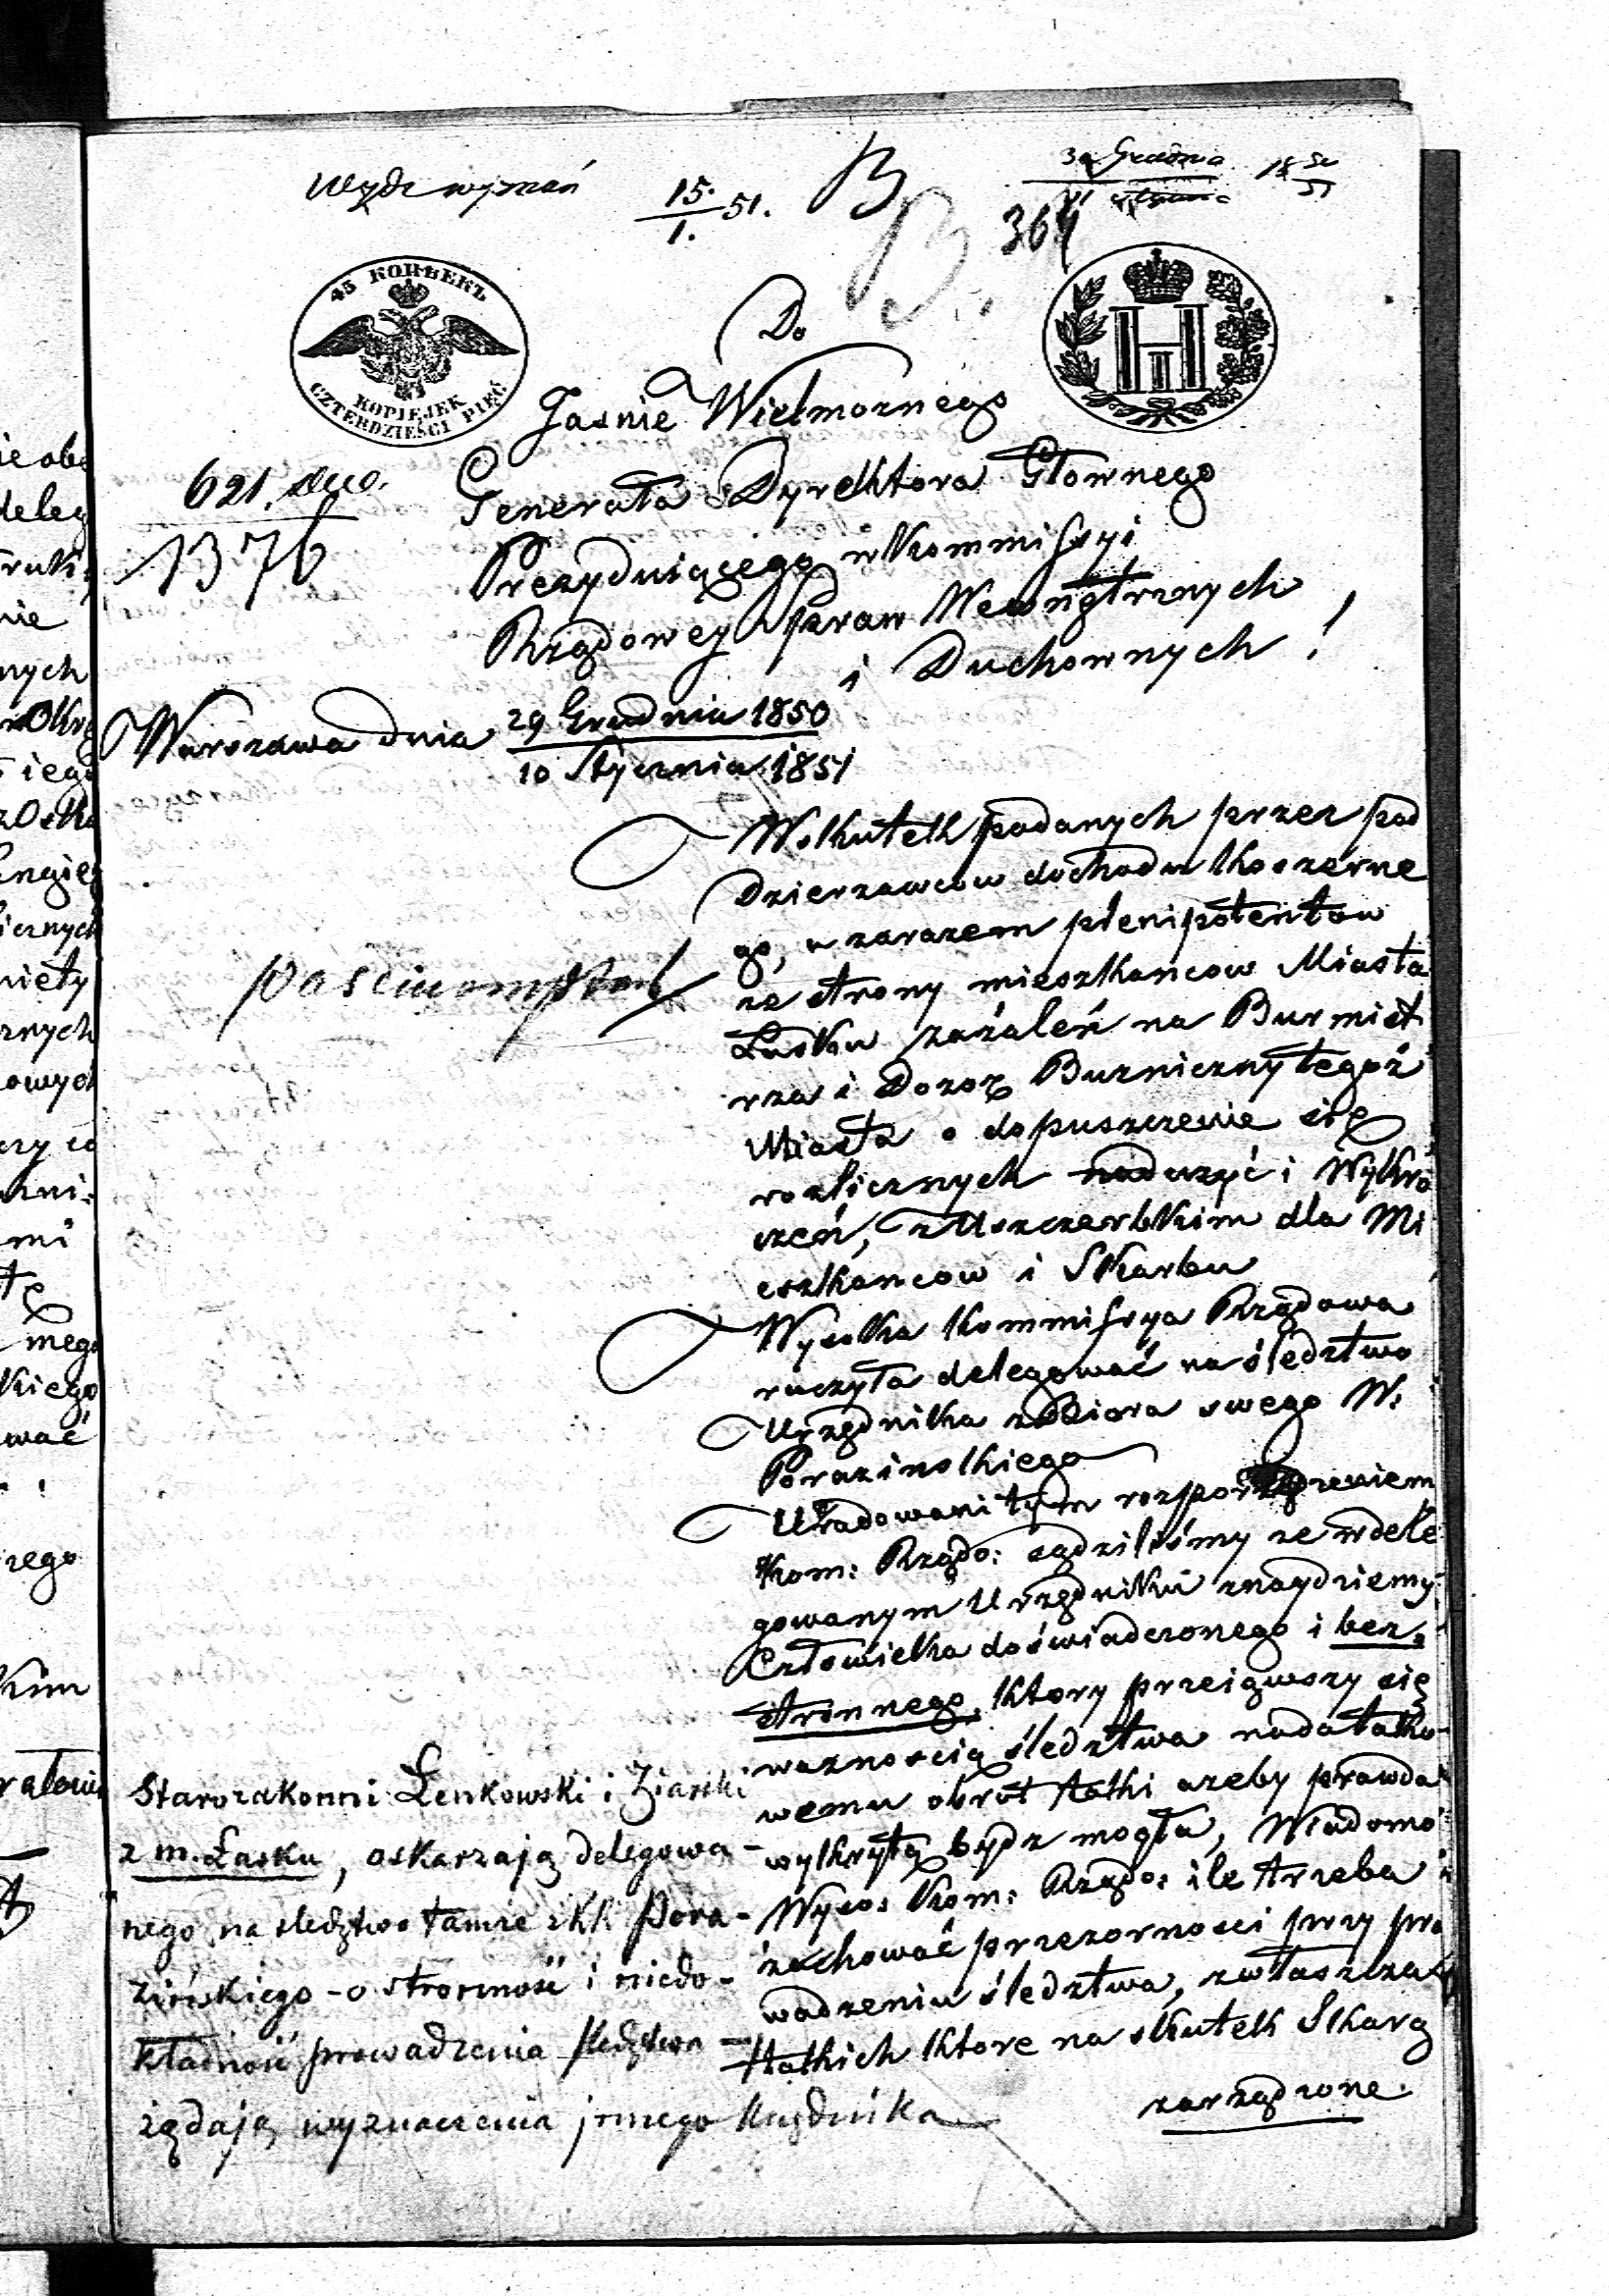 Wydz wyznań
15. / 1. 51.
B
30 Grudnia 1850/51
B.
364
45 КОПѢЕКЪ
KOPIEJEK
CZTERDZIEŚCI PIĘĆ
H
Do
Jaśnie Wielmożnego
621.
1376
Generała Dyrektora Głownego
Prezyduiącego w Kommissyi
Rządowey Spraw Wewnętrznych
i Duchownych!
Warszawa dnia 29 Grudnia 1850
10 Stycznia 1851
Wskutek podanych przez pod
dzierzawcow dochodu koszerne
go, a zarazem plenipotentow
ze strony mieszkancow Miasta
Łasku zażaleń na Burmist
rza i Dozor Bużniczny tegoż
Miasta o dopuszczenie się
rozlicznych naduzyć i Wykro
czeń, z Uszczerbkim dla Mi
eszkancow i Skarbu
Wysoka Kommissya Rządowa
raczyła delegować na śledztwo
Urzędnika zBiora swego W:
Porazinskiego
Uradowani tym rozporządzeniem
Kom: Rządo: sądziliśmy ze wdele
gowanym Urzędniku znaydziemy
Człowieka doświadczonego i bez=
stronnego, ktory przeiąwszy się
waznością śledztwa nadałtako
wemu obrot taki azeby prawda
wykrytą bydz mogła, Wiadomo
Wyso: Kom: Rządo: ile trzeba
zachować przezorności przy pro
wadzeniu śledztwa, zwłaszcza
takich ktore na skutek Skarg
zarządzone.
Starozakonni Łenkowski i
z m. Łasku, oskarzają delegowa-
nego na sledztwo tamże z KR Pora-
zińskiego - o stronność i niedo-
kładność prowadzenia śledztwa -
żądają wyznaczenia innego Urzędnika